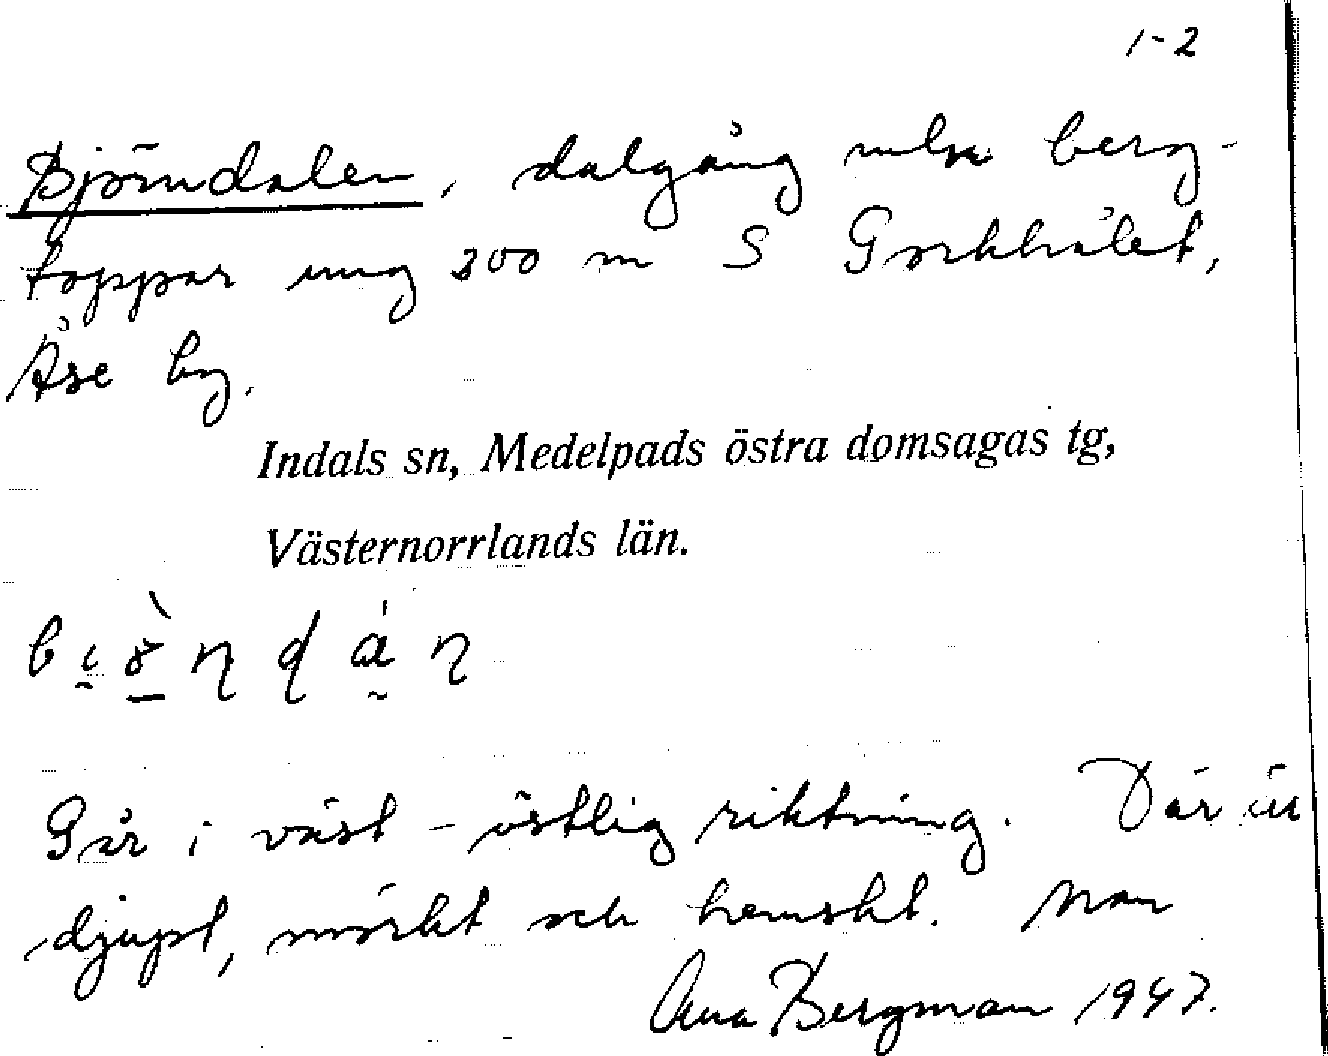 1-2
Björndalen, dalgång mln berg-
toppar ung 300 m S Gorkhålet,
Åse by.
Indals sn, Medelpads östra domsagas tg,
Västernorrlands län.
Går i väst-östlig riktning. Där är
djupt, mörkt och hemskt. Man
Ana Bergman 1947.